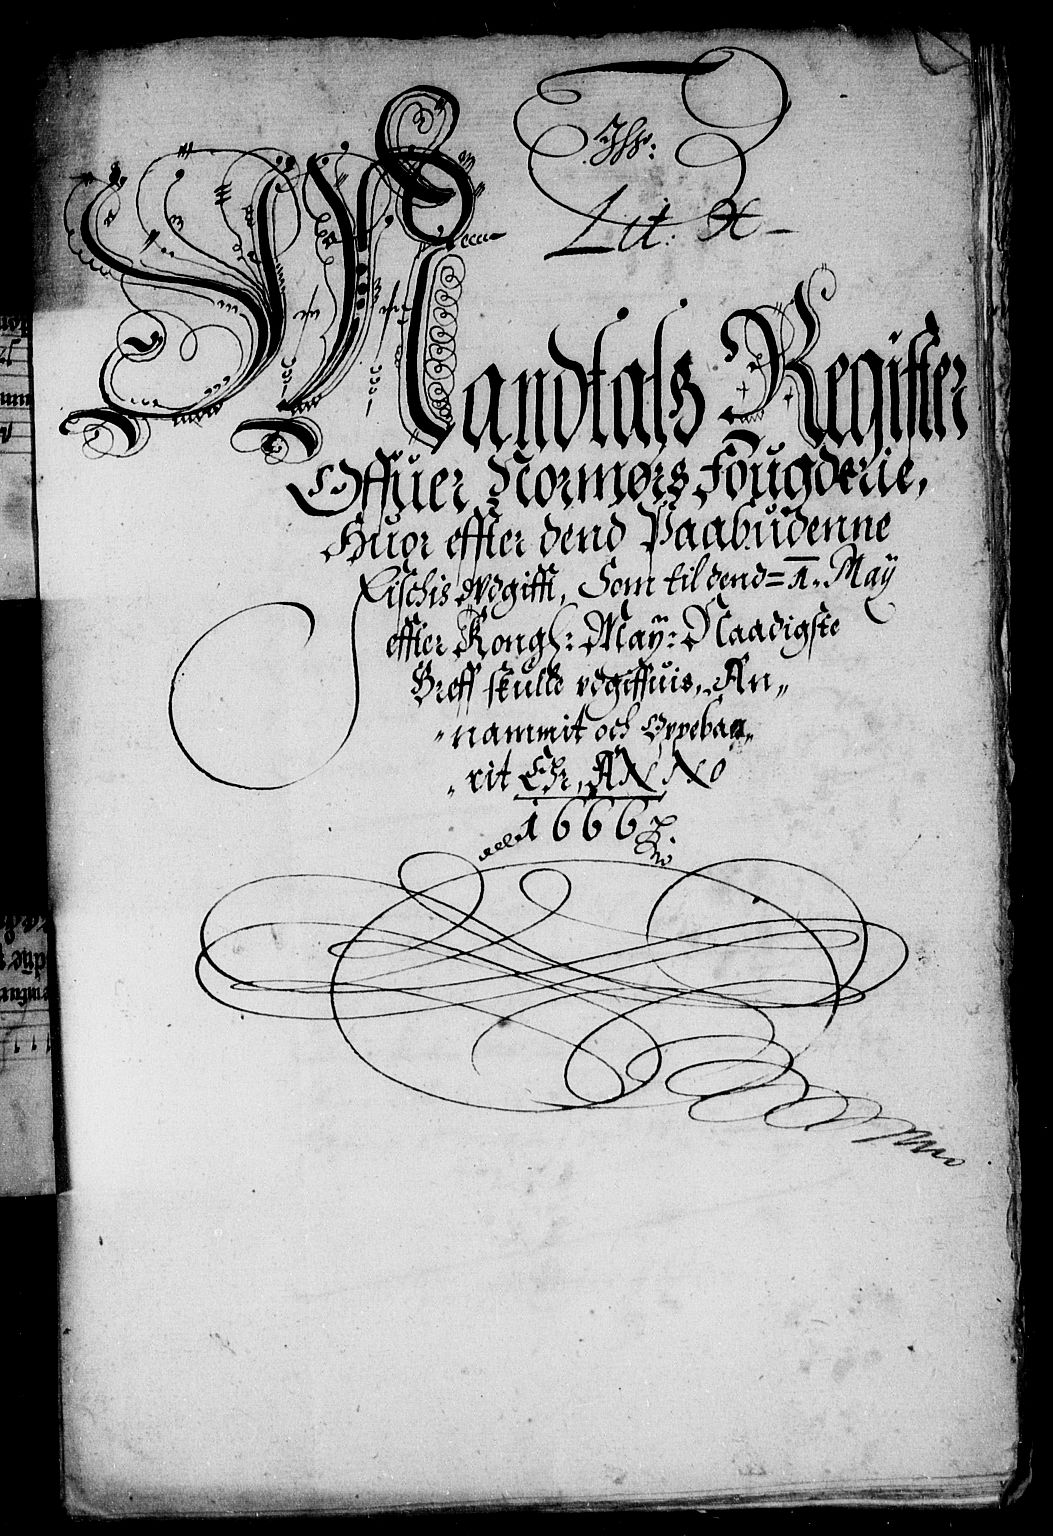 Lit: H
Mandtals Register
Offuer Normørs Fougderie,
Huor effter dend Paabudenne
Kischis Vdgifft, Som til dend = 1. May
effter Kongl: May: Naadigste
Breff skulle vdgiffuis, An„
„nammit och Oppebaa„
„rit Ehr, ANNO
1666